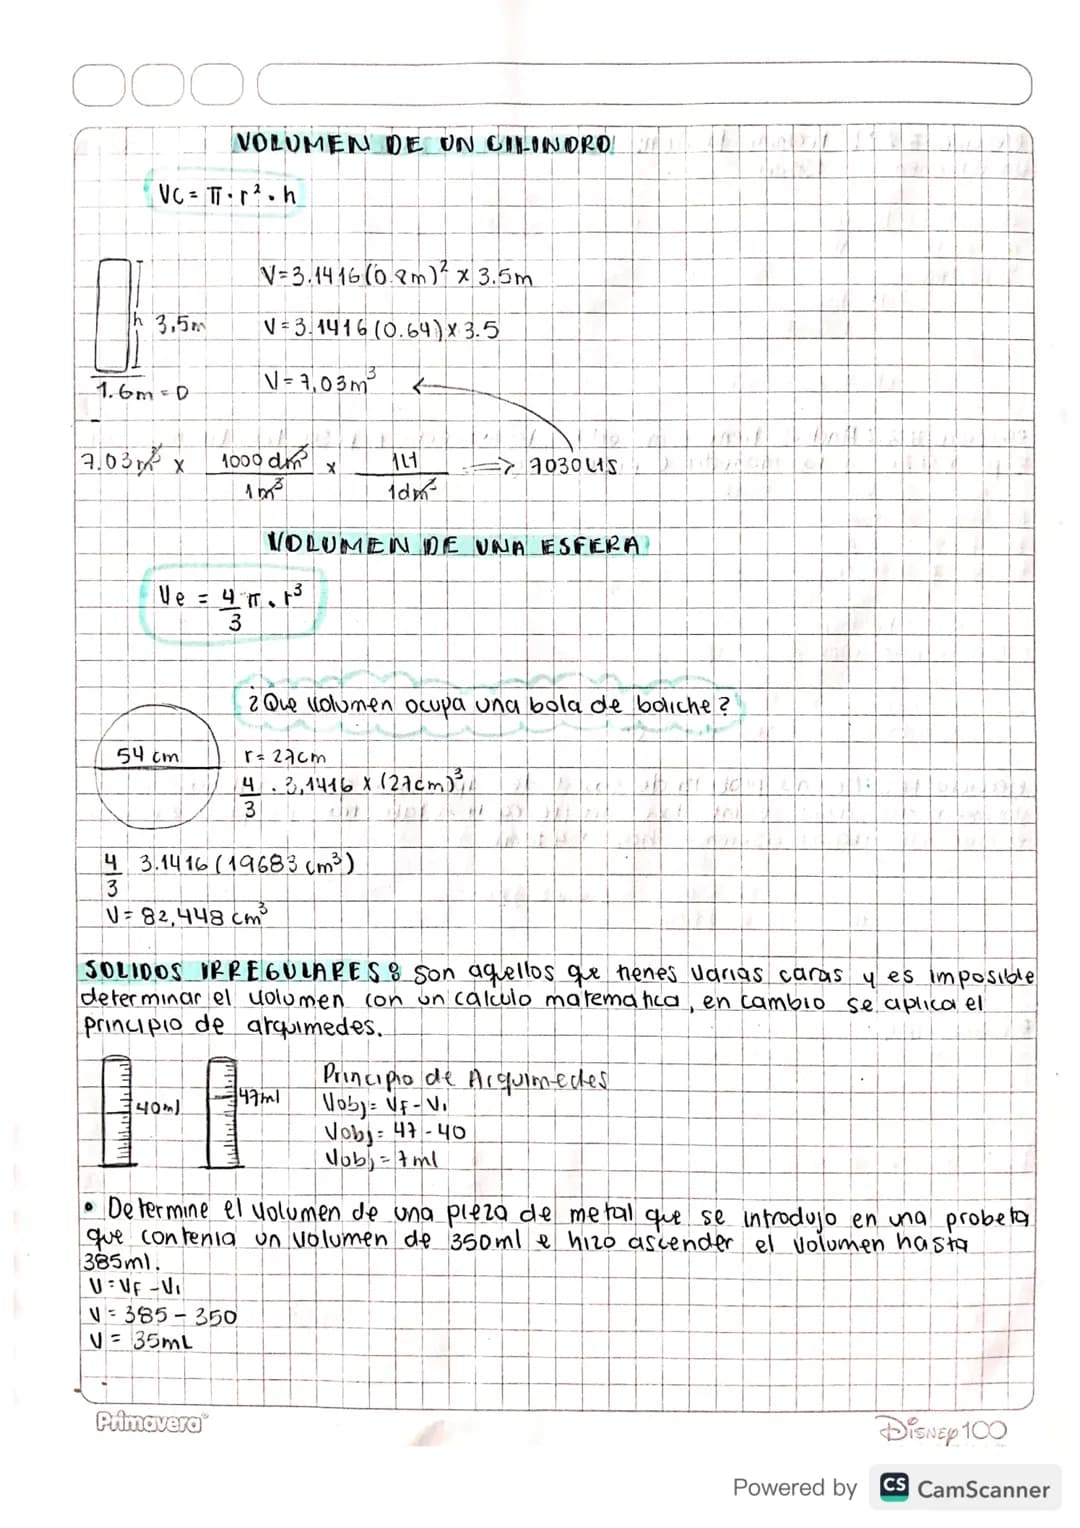 VOLUMEN DE UN CILINDRO
VC = π · r² · h
V=3.1416(0.8m)² x 3.5m
h 3,5m
V=3.1416(0.64)x3.5
1.6m=D
V=7,03m³
7.03m³ x 1000 dm³/1m³ x 1Lt/1dm³ => 7030Lts
VOLUMEN DE UNA ESFERA
Ve = 4/3 π · r³
¿Que volumen ocupa una bola de boliche?
54 cm
r=27cm
4/3 · 3,1416 x (27cm)³
4/3 3.1416(19683 cm³)
V=82,448 cm³
SOLIDOS IRREGULARES: Son aquellos que tienes varias caras y es imposible
determinar el volumen con un calculo matematica, en cambio se aplica el
principio de arquimedes.
Principio de Arquimedes
40ml
47ml
Vobj= VF-Vi
Vobj= 47-40
Vobj=7ml
• Determine el volumen de una pieza de metal que se introdujo en una probeta
que contenia un volumen de 350ml e hizo ascender el volumen hasta
385ml.
V=VF-Vi
V=385-350
V= 35mL
Primavera
Disney100
Powered by CS CamScanner